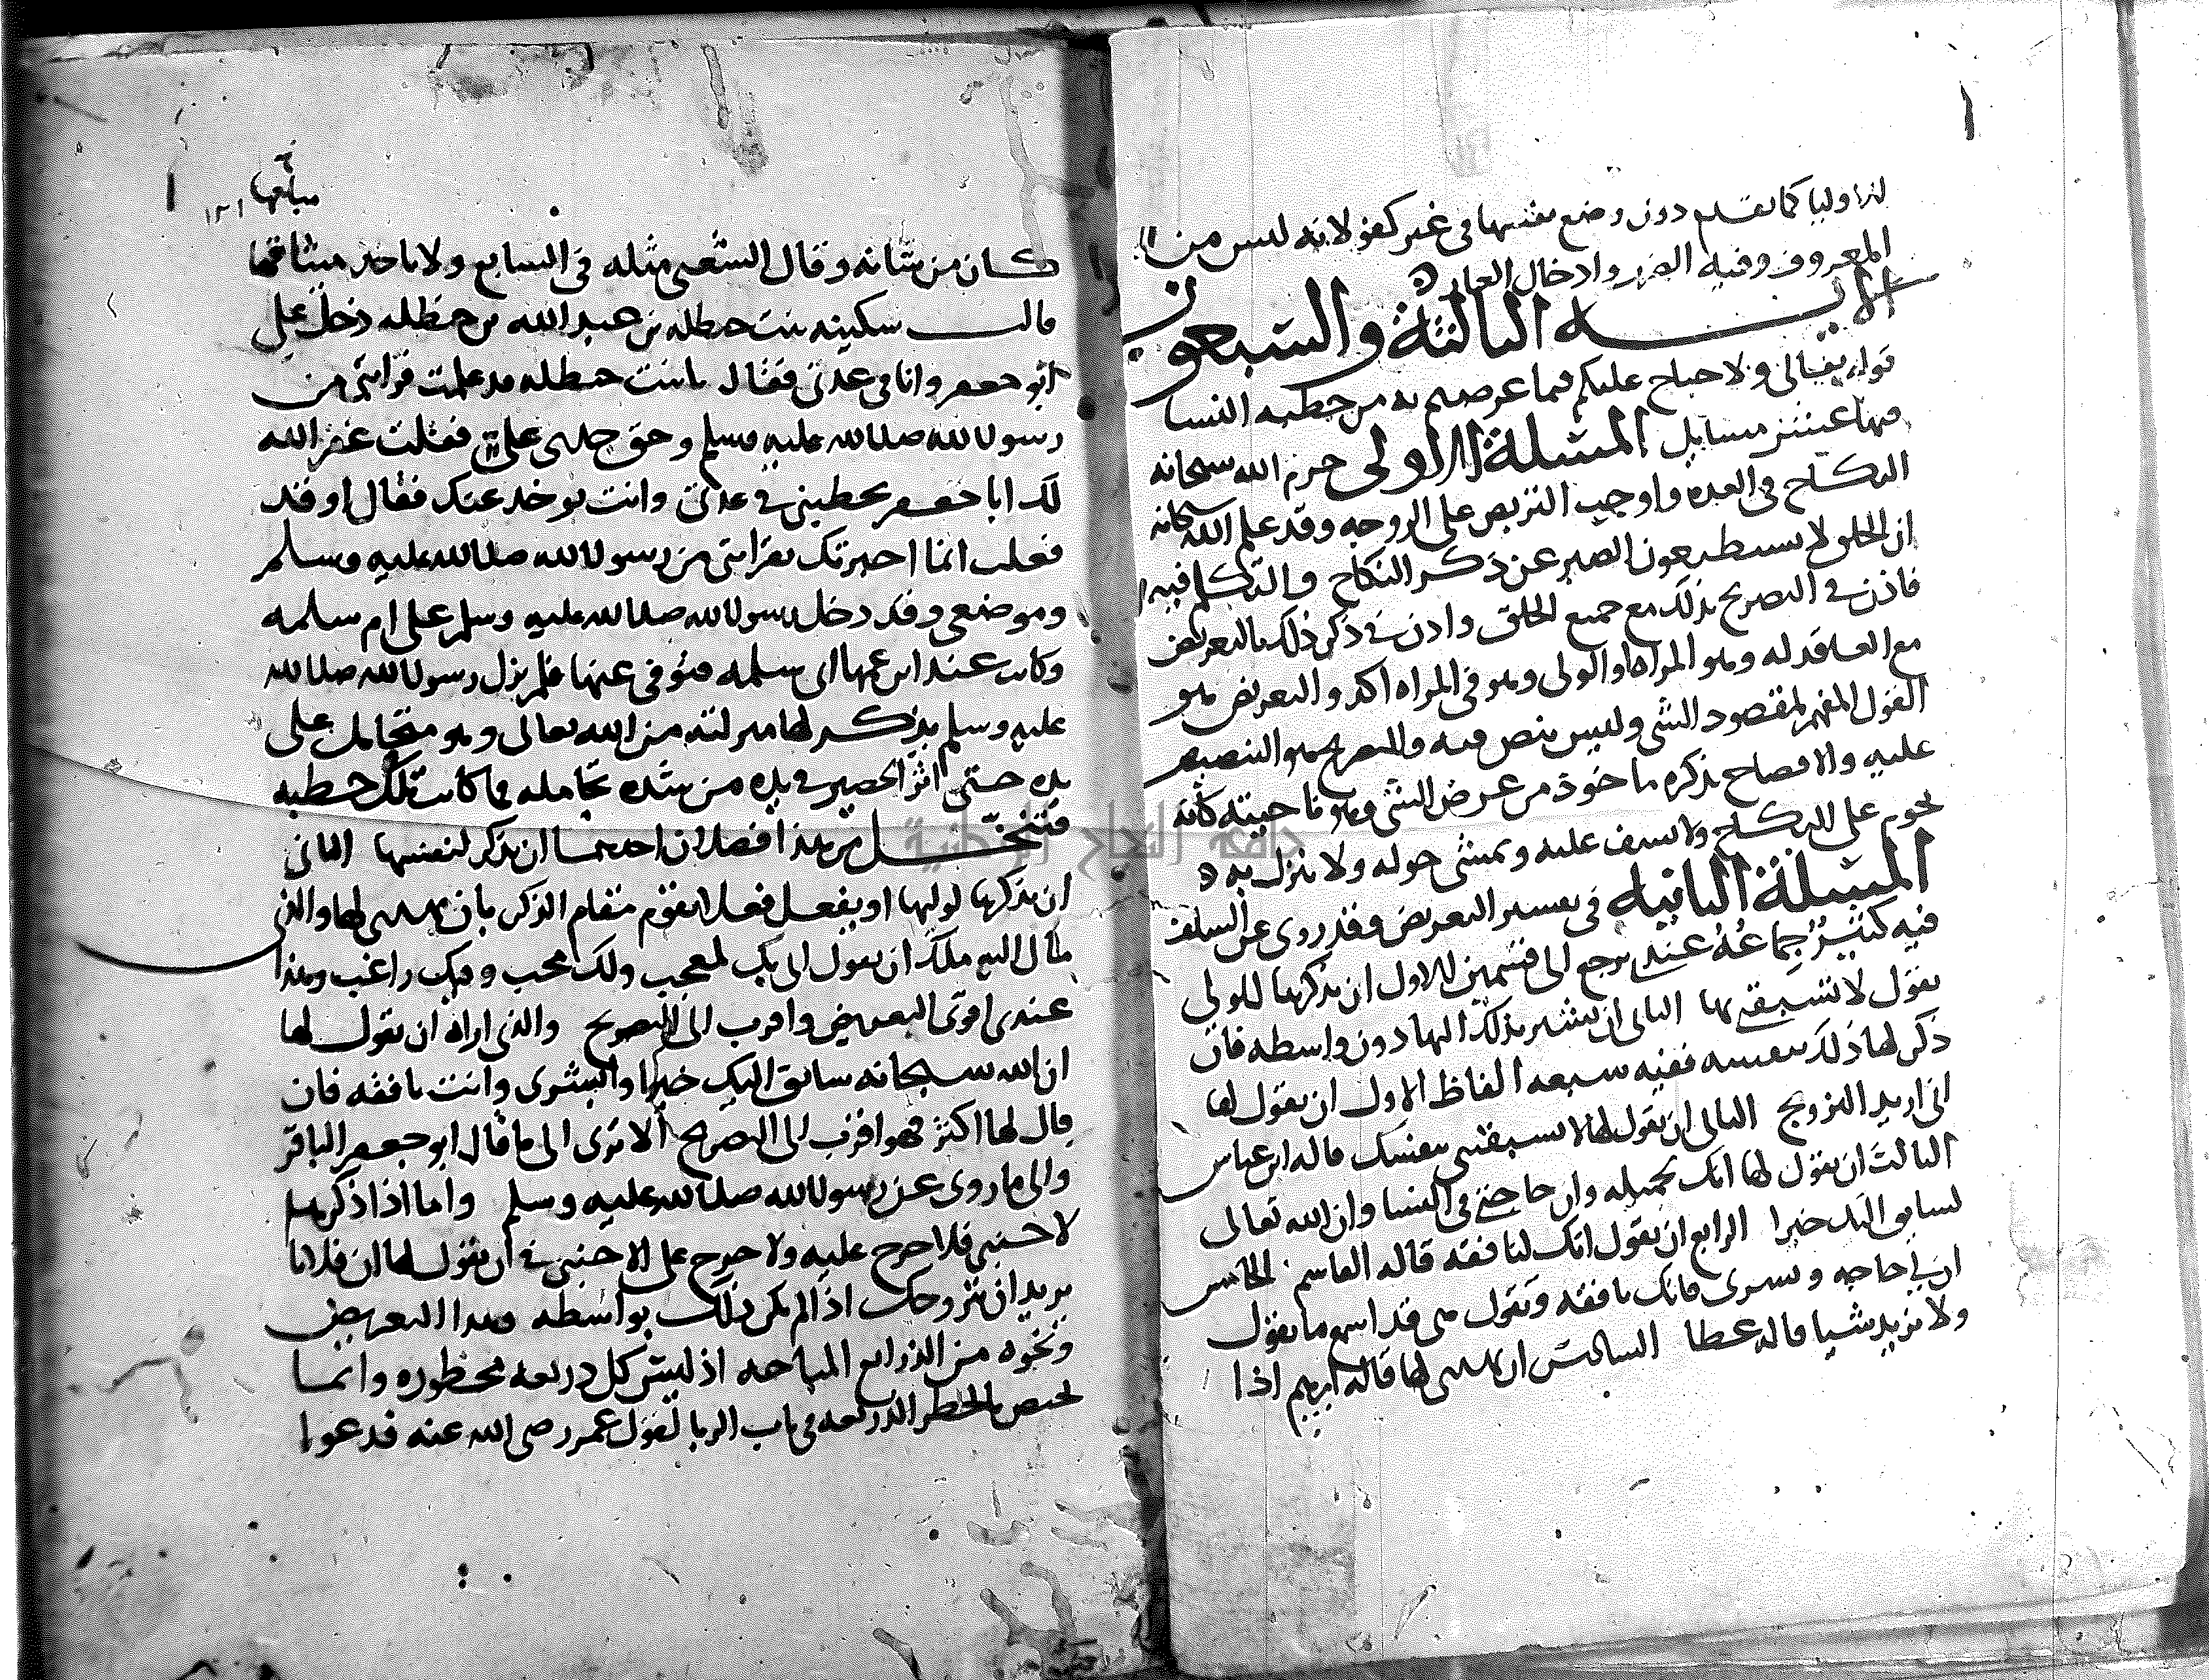 للاوليا كما تقدم دون وضع نفسها في غير كفو لانه ليس من
المعروف وفيه الضرر وادخال العار ه
الايه الثالثة والسبعون
قوله تعالى ولا جناح عليكم فيما عرضتم به من خطبه النسا
فيها عشر مسايل المسلة الاولى حرم الله سبحانه
النكاح في العده واوجب التربص على الزوجه وقد علم الله سبحانه
ان الخلق لا يستطيعون الصبر عن ذكر النكاح والتكلم فيه
فاذن في التصريح بذلك مع جميع الخلق واذن في ذكر ذلك بالتعريض
مع العاقد له وهو المراه او الولى وهو في المراه اكد والتعريض هو
القول المفهم لمقصود الشي وليس بنص فيه والتصريح هو التنصيص
عليه والافصاح بذكره ماخوذ من عرض الشي وهو ناحيته كانه
يحوم على النكاح ولا يسف عليه ويمشي حوله ولا ينزل به ه
المسلة الثانيه في تفسير التعريض وقد روى عن السلف
فيه كثير جماعه عندي يرجع الى قسمين الاول ان يذكرها للولي
يقول لا تسبقني بها الثاني ان يشير بذلك اليها دون واسطه فان
ذكر لها ذلك بنفسه ففيه سبعه الفاظ الاول ان يقول لها
اني اريد التزويج الثاني ان يقول لها لا تسبقني بنفسك قاله ابن عباس
الثالث ان يقول لها انك لجميله وان حاجتي في النسا وان الله تعالى
لسايق اليك خيرا الرابع ان يقول انك لنافقه قاله القاسم الخامس
ان لي حاجه وابشري فانك نافقه وتقول هي قد اسمع ما تقول
ولا تزيد شيا قاله عطا السادس ان يهدي لها قاله ابرهيم اذا
مبايعها
١٢١
كان من شانه وقال الشعبي مثله في السابع ولا ياخذ ميثاقها
قالت سكينه بنت حنظله بن عبد الله بن حنظله دخل علي
ابو جعفر وانا في عدتي فقال يا بنت حنظله قد علمت قرابتي من
رسول الله صلى الله عليه وسلم وحق جدي علي فقلت غفر الله
لك ابا جعفر تخطبني في عدتي وانت يوخذ عنك فقال او قد
فعلت انما اخبرتك بقرابتي من رسول الله صلى الله عليه وسلم
وموضعي وقد دخل رسول الله صلى الله عليه وسلم على ام سلمه
وكانت عند ابن عمها ابي سلمه فتوفي عنها فلم يزل رسول الله صلى الله
عليه وسلم يذكر لها منزلته من الله تعالى وهو متحامل على
يده حتى اثر الحصير في يده من شده تحامله فما كانت تلك خطبه
فتنخل من هذا فصلان احدهما ان يذكر لنفسها الثاني
ان يذكرها لوليها او يفعل فعلا يقوم مقام الذكر بان يهدي لها والذي
مال اليه ملك ان يقول اني بك لمعجب ولك محب وفيك راغب وهذا
عندي اقوى التعريض واقرب الى التصريح والذي اراه ان يقول لها
ان الله سبحانه سايق اليك خيرا وابشري وانت نافقه فان
قال لها اكثر فهو اقرب الى التصريح الا ترى الى ما قال ابو جعفر الباقر
والى ما روى عن رسول الله صلى الله عليه وسلم واما اذا ذكرها
لاجنبي فلا حرج عليه ولا حرج على الاجنبي في ان يقول لها ان فلانا
يريد ان يتزوجك اذا لم يكن ذلك بواسطه وهذا التعريض
ونحوه من الذرايع المباحه اذ ليس كل ذريعه محظوره وانما
يختص بالحظر الذريعه في باب الربا لقول عمر رضي الله عنه فدعوا